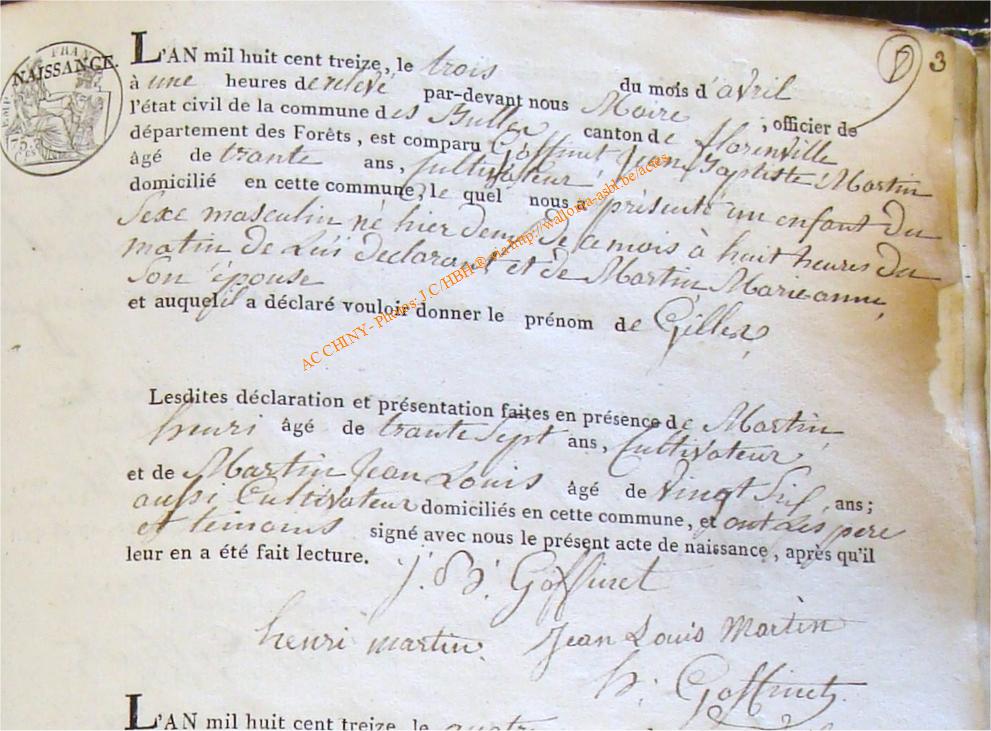 3
NAISSANCE.
L'AN mil huit cent treize, le trois du mois d'avril
à une heures de relevé par-devant nous Maire, officier de
l'état civil de la commune des Bulles canton de florenville
département des Forêts, est comparu Goffinet Jean Baptiste Martin
âgé de trante ans, Cultivateur
domicilié en cette commune, le quel nous a présenté un enfant du
Sexe masculin né hier deux de ce mois à huit heures du
matin de Lui déclarant et de Martin Marie anne,
Son épouse
et auquel il a déclaré vouloir donner le prénom de Gilles,
Lesdites déclaration et présentation faites en présence de Martin
henri âgé de trante Sept ans, Cultivateur
et de Martin Jean Louis âgé de vingt Six ans;
aussi Cultivateur domiciliés en cette commune, et ont Les pere
et témoins signé avec nous le présent acte de naissance, après qu'il
leur en a été fait lecture.
J. B. Goffinet
henri martin. Jean Louis Martin
h. Goffinet.
L'AN mil huit cent treize, le quatre
AC CHINY - Photos: J.C/HBH ® via http://wallonia-asbl.be/actes